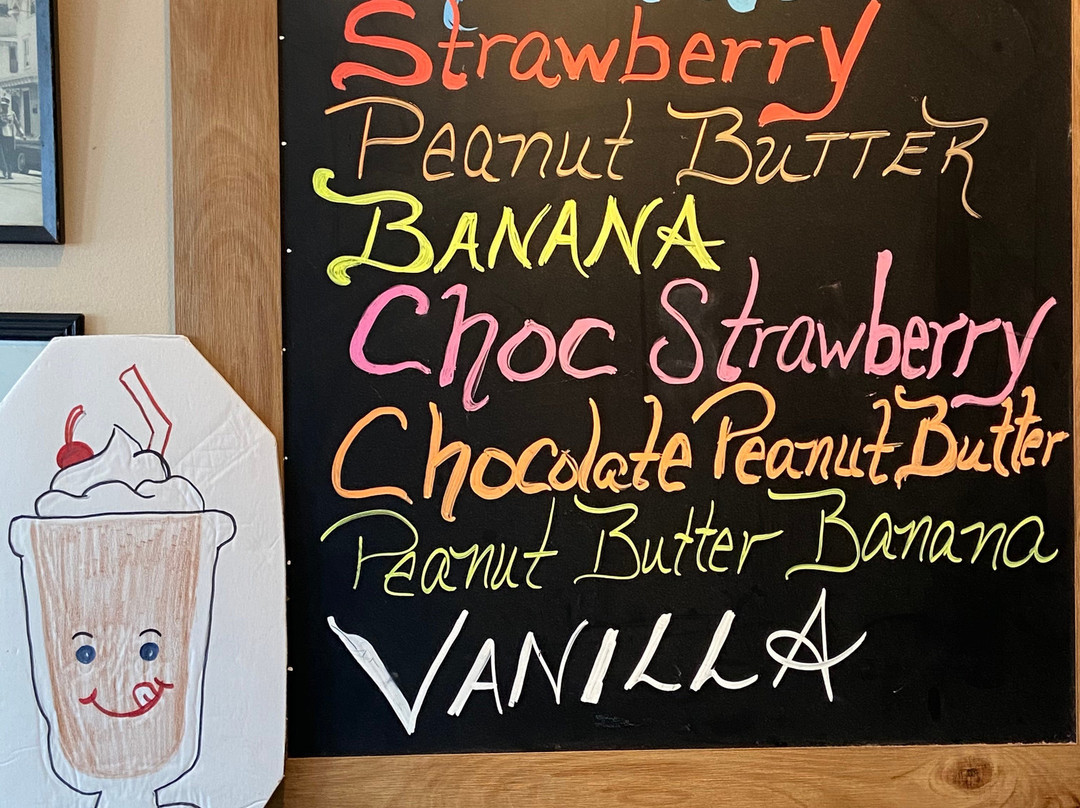 Strawberry
Peanut BUTTER
BANANA
Choc Strawberry
Chocolate Peanut Butter
Peanut Butter Banana
VANILLA